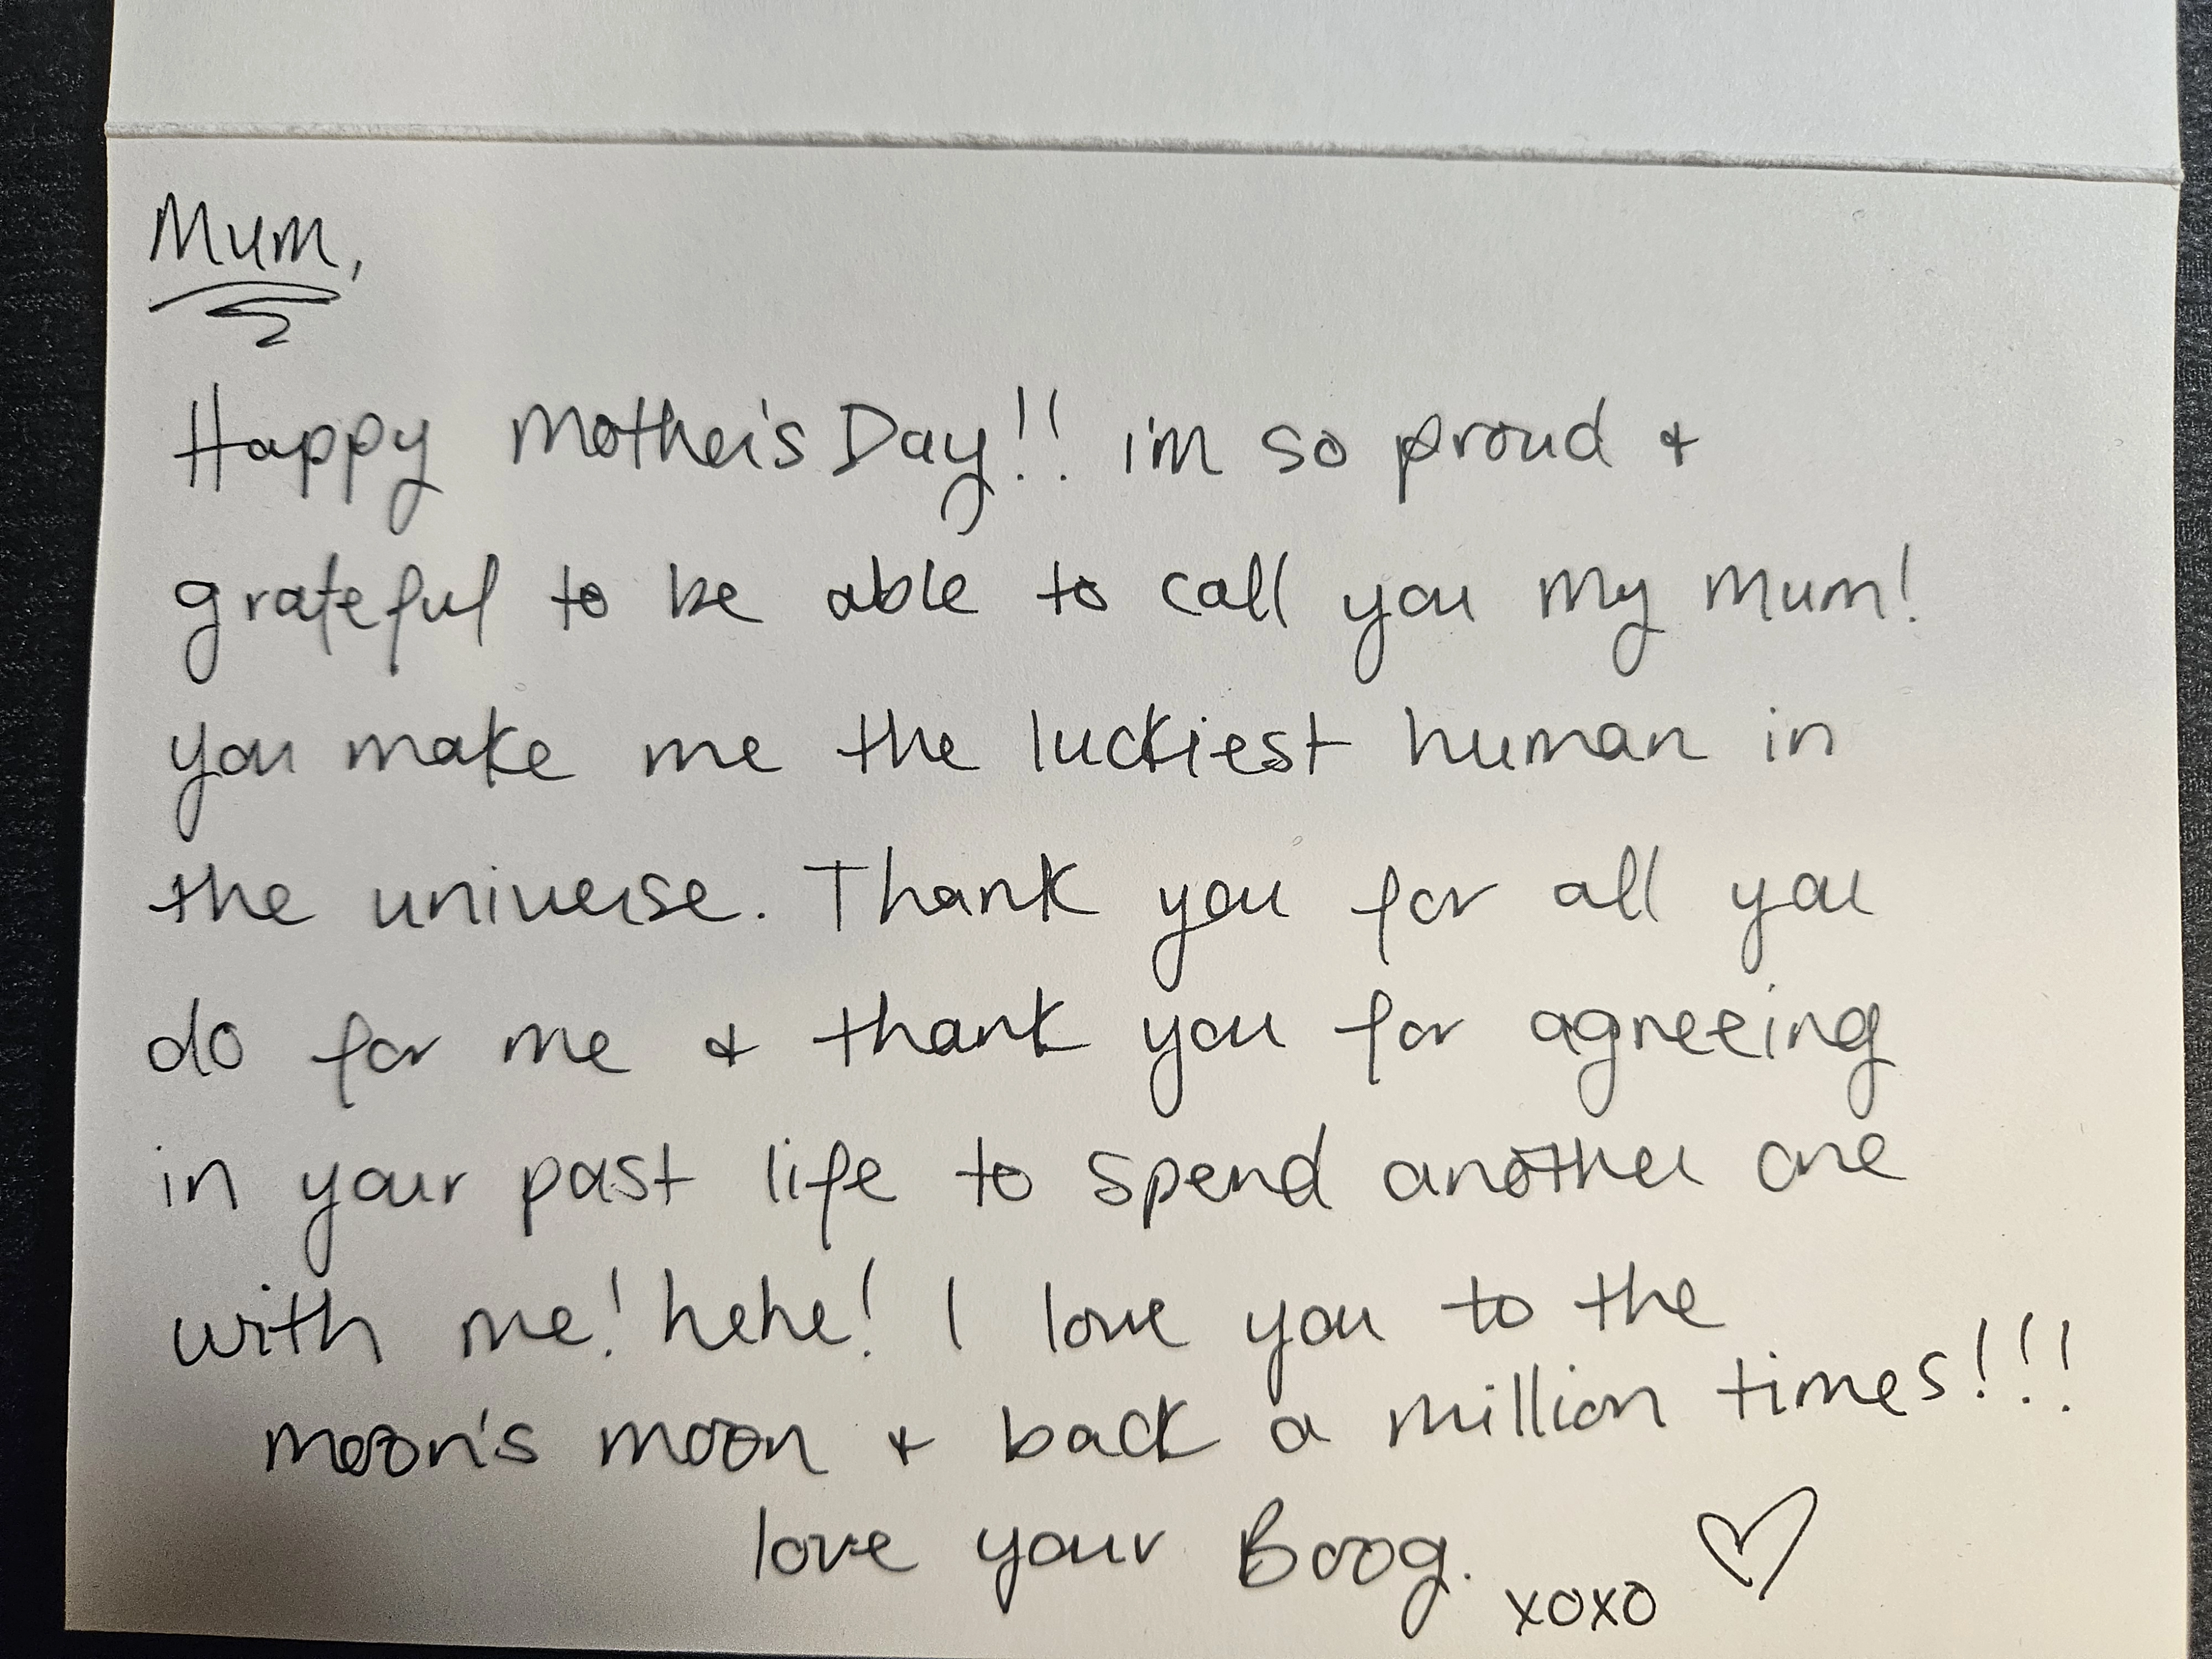 Mum,
Happy Mother's Day!! i'm so proud &
grateful to be able to call you my mum!
you make me the luckiest human in
the universe. Thank you for all you
do for me & thank you for agreeing
in your past life to spend another one
with me! hehe! I love you to the
moon's moon & back a million times!!!
love your Boog.
xoxo ♡